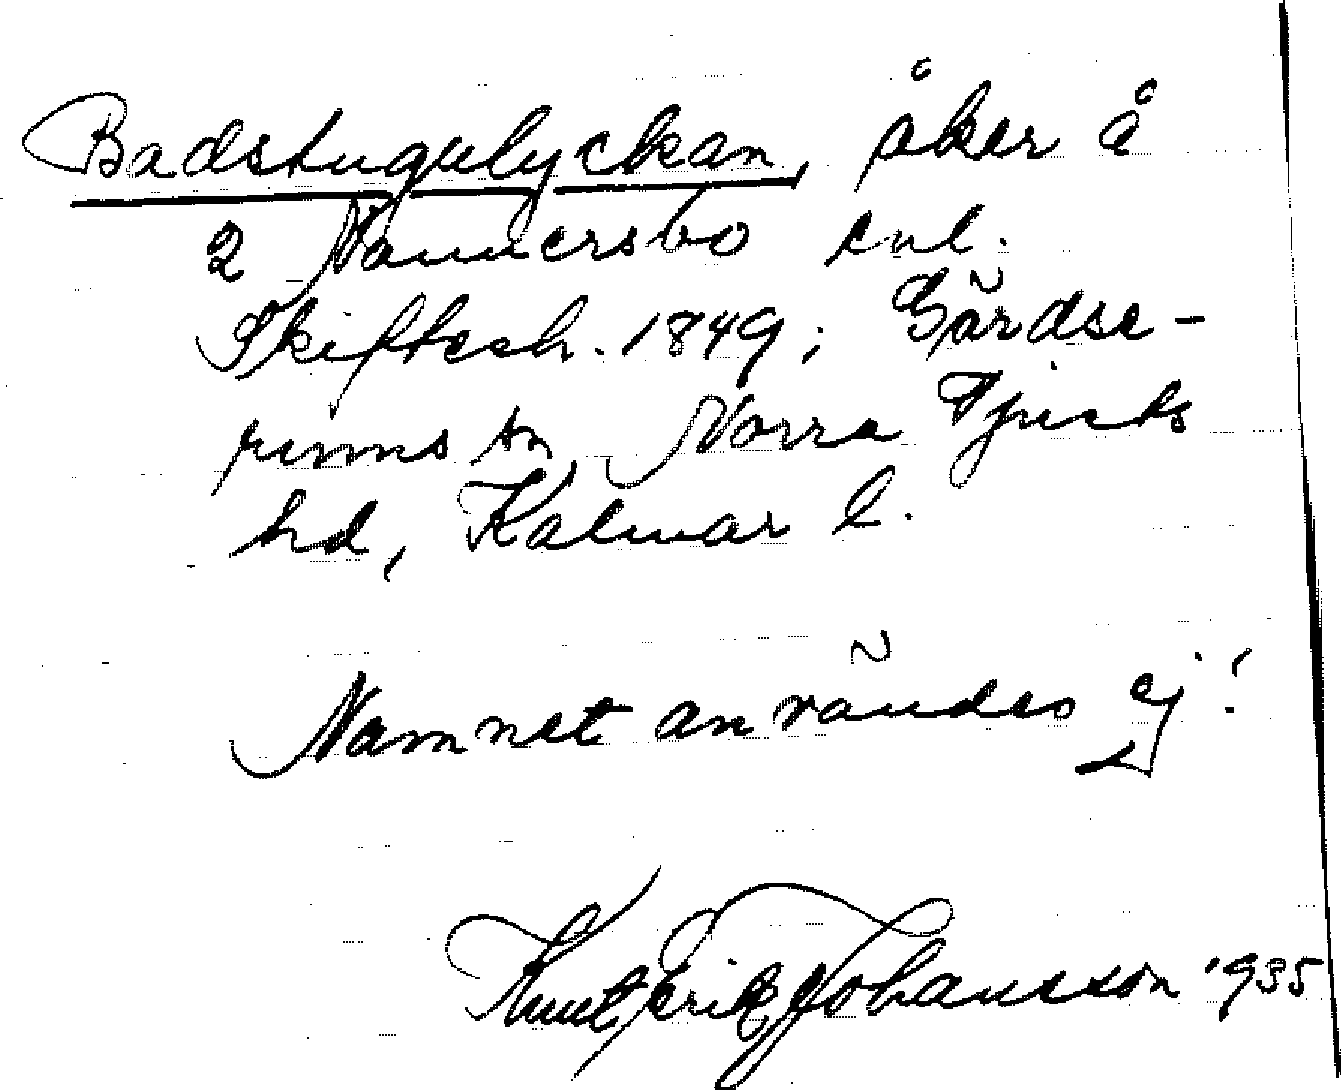 Badstugulyckan, åker å
2 Nannersbo enl.
Skiftesh. 1849; Gärdse-
rums sn Norra Tjusts
hd, Kalmar l.
Namnet användes ej!
Knut Erik Johansson 1935